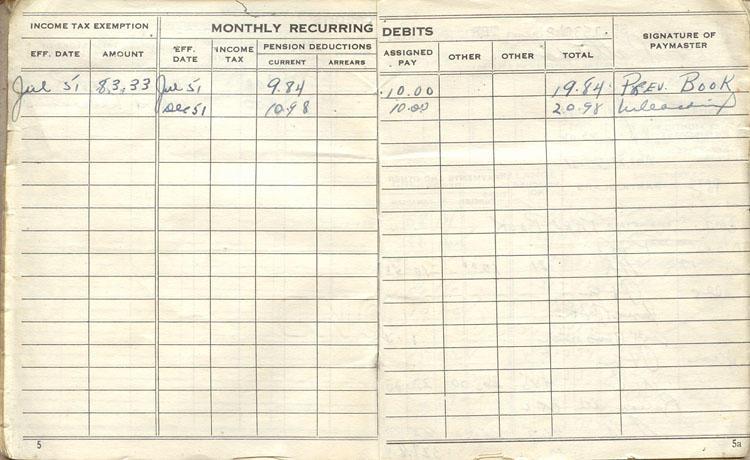 INCOME TAX EXEMPTION MONTHLY RECURRING DEBITS SIGNATURE OF PAYMASTER
EFF. DATE AMOUNT EFF. DATE INCOME TAX PENSION DEDUCTIONS CURRENT ARREARS ASSIGNED PAY OTHER OTHER TOTAL
Jul 51 83.33 Jul 51 9.84 10.00 19.84 PREV. BOOK
Dec 51 10.98 10.00 20.98
5 5a